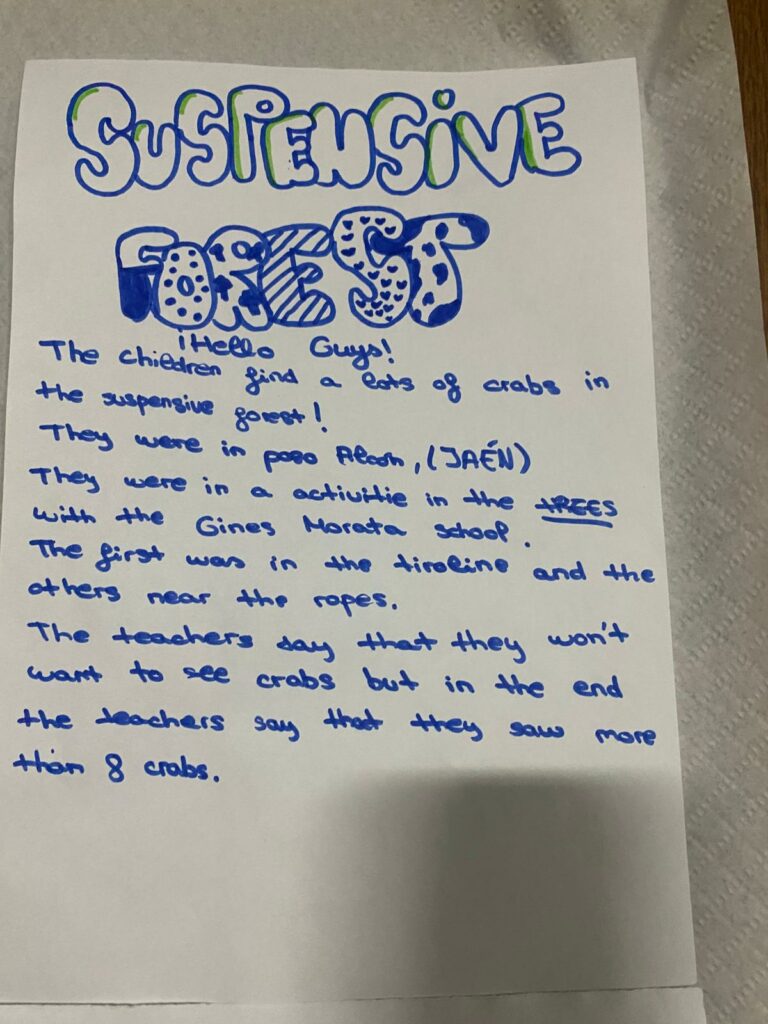 SUSPENSIVE
FOREST
¡Hello Guys!
The children find a lots of crabs in
the suspensive forest!
They were in pozo Alcon, (JAÉN)
They were in a activitie in the TREES
with the Gines Morata school.
The first was in the tiroline and the
others near the ropes.
The teachers say that they won't
want to see crabs but in the end
the teachers say that they saw more
than 8 crabs.